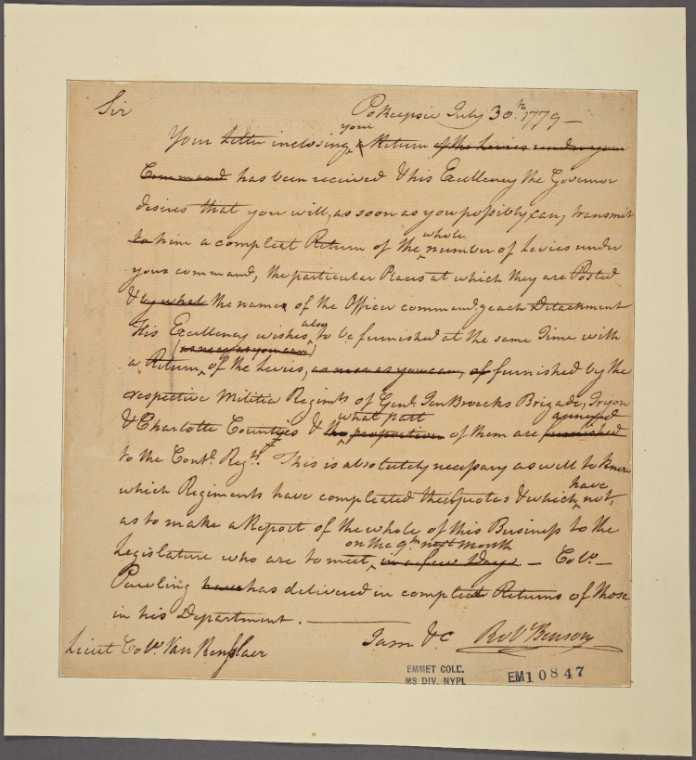 Sir
Pokeepsie July 30.th 1779 —
your
Your Letter inclosing a Return of the Levies under your
Command has been received & his Excellency the Governor
desires that you will, as soon as you possibly can, transmit
to him a compleat Return of the number of Levies under
whole
your command, the particular Places at which they are Posted
& by what the name of the Officer command.g each Detachment
His Excellency wishes to be furnished at the same Time with
also
(as near as you can)
a Return, of the Levies, as near as you can, of furnished by the
respective Militia Regim.ts of Gen.l Ten Broecks Brigade, Tryon
what part
annexed
& Charlotte Counties & the proportion of them are furnished
to the Cont.l Reg.ts. This is absolutely necessary as well to know
have
which Regiments have compleated their Quotas & which not,
as to make a Report of the whole of this Business to the
on the 9.th next Month
Legislature who are to meet, in a few Days. — Col.o —
Pawling have has delivered in compleat Returns of those
in his Department. —
I am &c Rob.t Benson
Lieut Col.o Van Rensslaer
EMMET COLL.
MS DIV. NYPL
EM10847